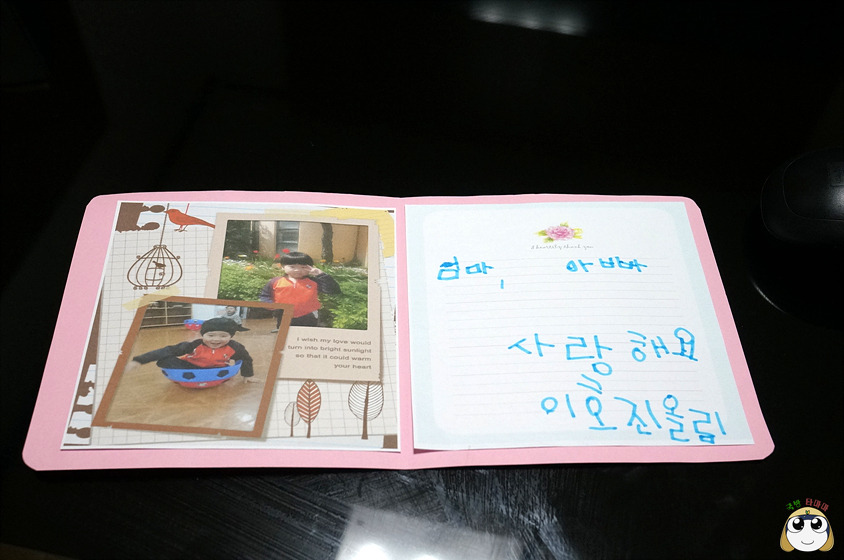 I wish my love would
turn into bright sunlight
so that it could warm
your heart
I heartily thank you
엄마, 아빠
사랑해요
이오진올림